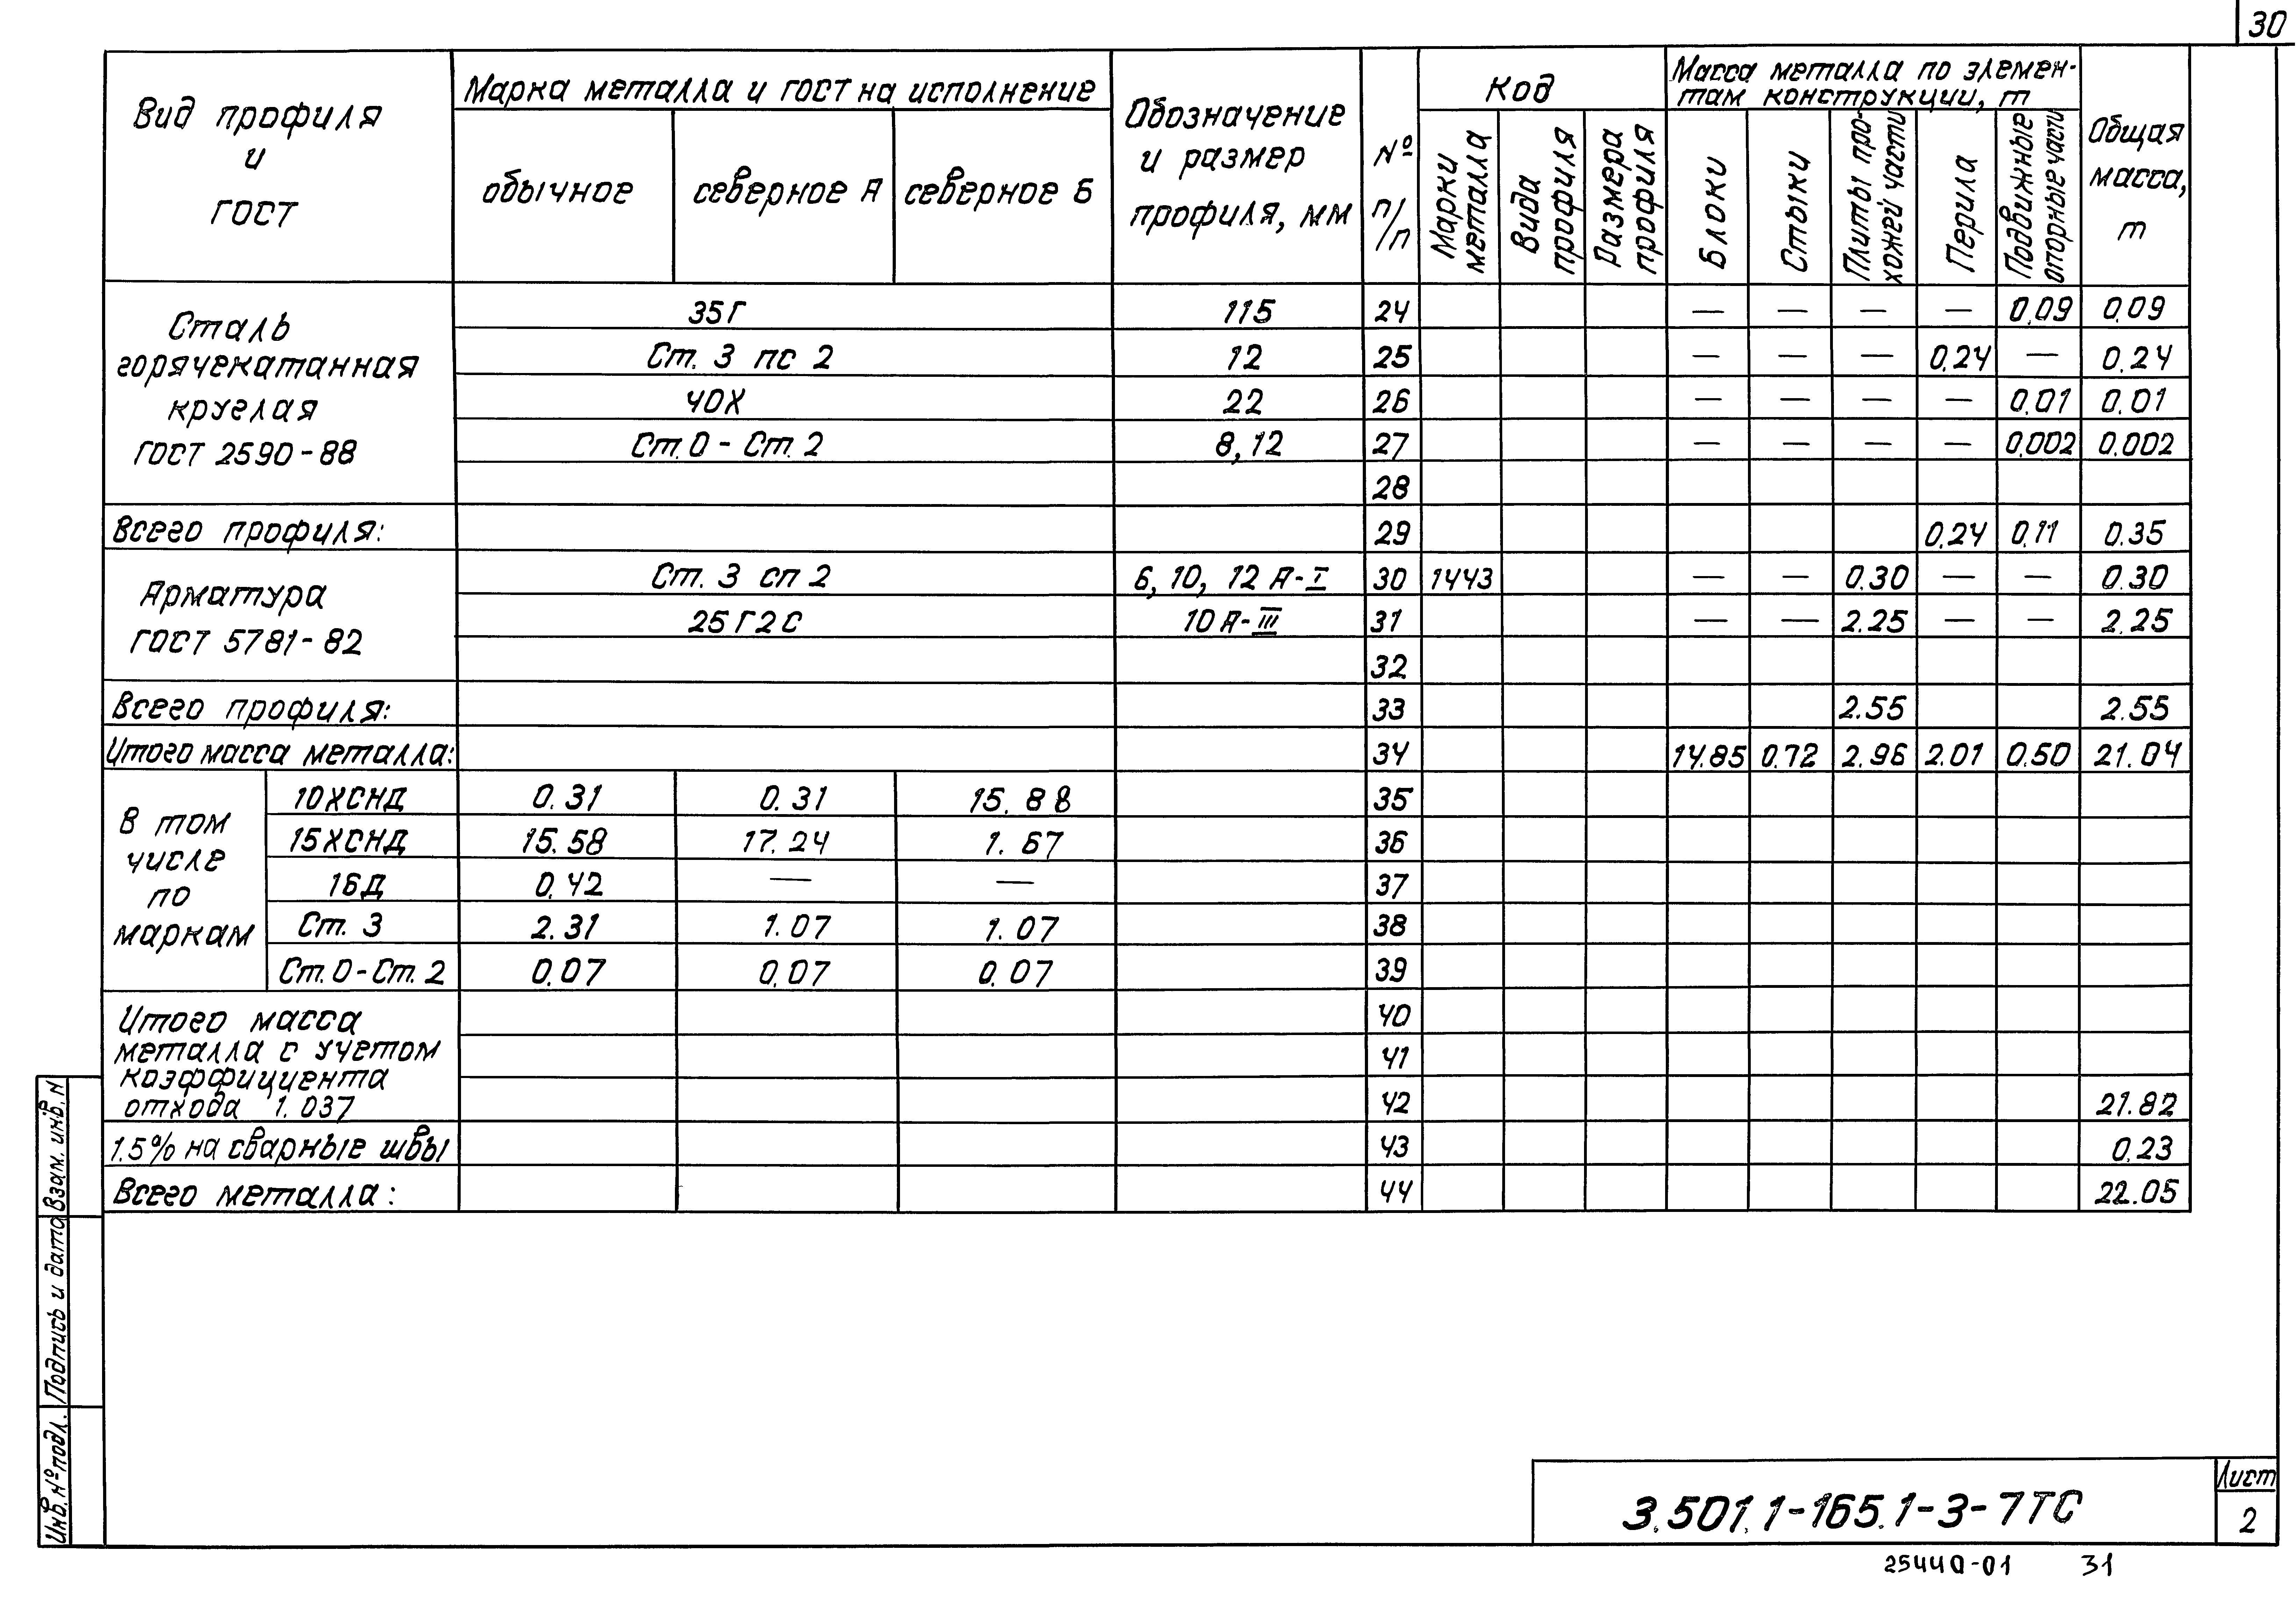 30
Вид профиля и ГОСТ
Марка металла и ГОСТ на исполнение
обычное северное А северное Б
Обозначение и размер профиля, мм
№ п/п
Код
Марки металла
Вида профиля
Размера профиля
Масса металла по элемен-
там конструкции, т
Блоки
Стыки
Плиты про-
хожей части
Перила
Подвижные опорные части
Общая масса, т
Сталь горячекатанная круглая ГОСТ 2590-88
35Г 115 24 — — — — 0.09 0.09
Ст. 3 пс 2 12 25 — — — 0.24 — 0.24
40Х 22 26 — — — — 0.01 0.01
Ст.0 - Ст.2 8,12 27 — — — — 0.002 0.002
28
Всего профиля: 29 0.24 0.11 0.35
Арматура ГОСТ 5781-82
Ст. 3 сп 2 6, 10, 12 А-I 30 1443 — — 0.30 — — 0.30
25Г2С 10 А-III 31 — — 2.25 — — 2.25
32
Всего профиля: 33 2.55 2.55
Итого масса металла: 34 14.85 0.72 2.96 2.01 0.50 21.04
В том числе по маркам
10ХСНД 0.31 0.31 15.88 35
15ХСНД 15.58 17.24 1.67 36
16Д 0.42 — — 37
Ст. 3 2.31 1.07 1.07 38
Ст.0-Ст.2 0.07 0.07 0.07 39
Итого масса 40
металла с учетом 41
коэффициента
отхода 1.037 42 21.82
1.5% на сварные швы 43 0.23
Всего металла: 44 22.05
Взам. инв. N
Подпись и дата
Инв. № подл.
3.501.1-165.1-3-7ТС
Лист
2
25440-01 31